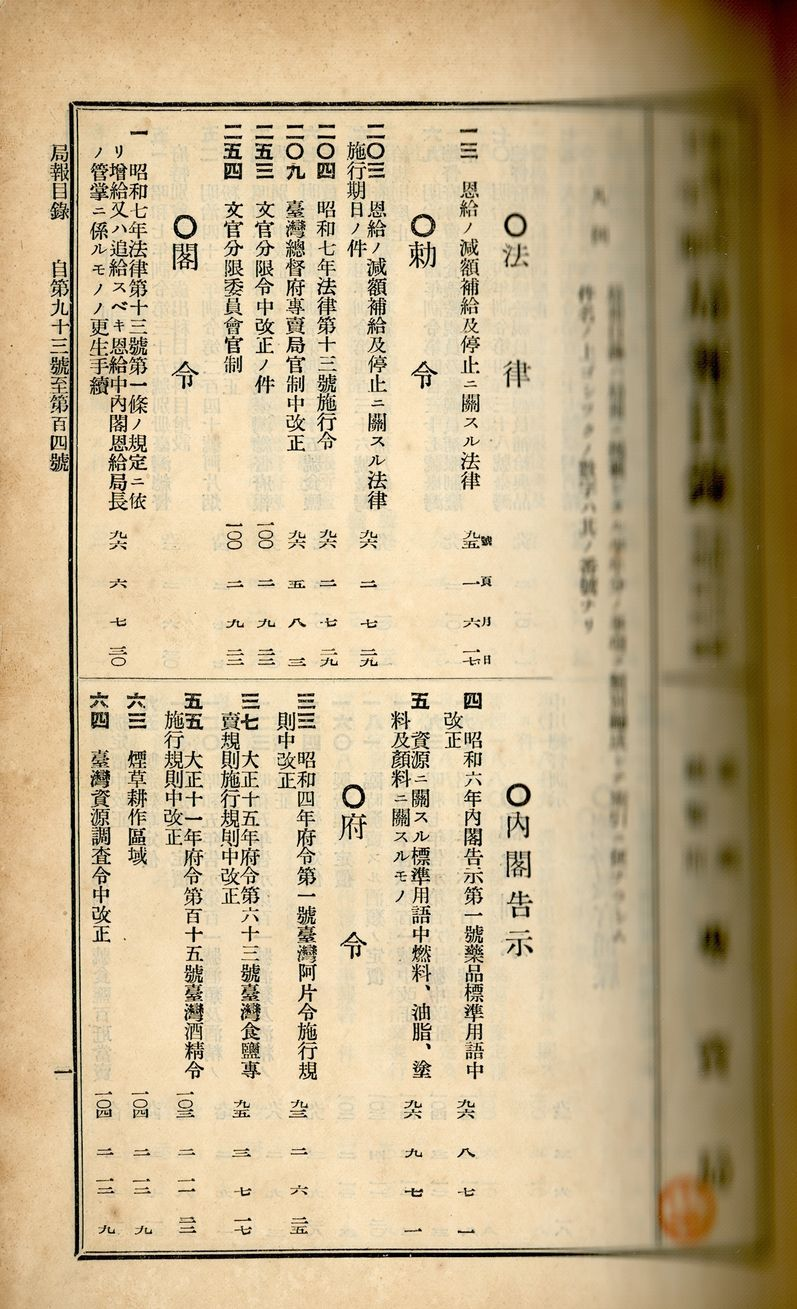 件名ノ上ゴシツクノ數字ハ其ノ番號ナリ
〇法律
號 頁 月 日
一三 恩給ノ減額補給及停止ニ關スル法律 九五 一 六 一七
〇勅令
二〇三 恩給ノ減額補給及停止ニ關スル法律
施行期日ノ件 九六 二 七 二九
二〇四 昭和七年法律第十三號施行令 九六 二 七 二九
二〇九 臺灣總督府專賣局官制中改正 九六 五 八 三
二五三 文官分限令中改正ノ件 一〇〇 二 九 二二
二五四 文官分限委員會官制 一〇〇 二 九 二二
〇閣令
一 昭和七年法律第十三號第一條ノ規定ニ依
リ增給又ハ追給スベキ恩給中內閣恩給局長
ノ管掌ニ係ルモノノ更生手續 九六 六 七 三〇
〇內閣告示
四 昭和六年內閣告示第一號藥品標準用語中
改正 九六 八 七 一
五 資源ニ關スル標準用語中燃料、油脂、塗
料及顏料ニ關スルモノ 九六 九 七 一
〇府令
三三 昭和四年府令第一號臺灣阿片令施行規
則中改正 九三 二 六 二五
三七 大正十五年府令第六十三號臺灣食鹽專
賣規則施行規則中改正 九五 三 七 一七
五五 大正十一年府令第百十五號臺灣酒精令
施行規則中改正 一〇三 二 一一 二二
六三 煙草耕作區域 一〇四 二 一二 九
六四 臺灣資源調查令中改正 一〇四 二 一二 九
局報目錄 自第九十三號至第百四號
一